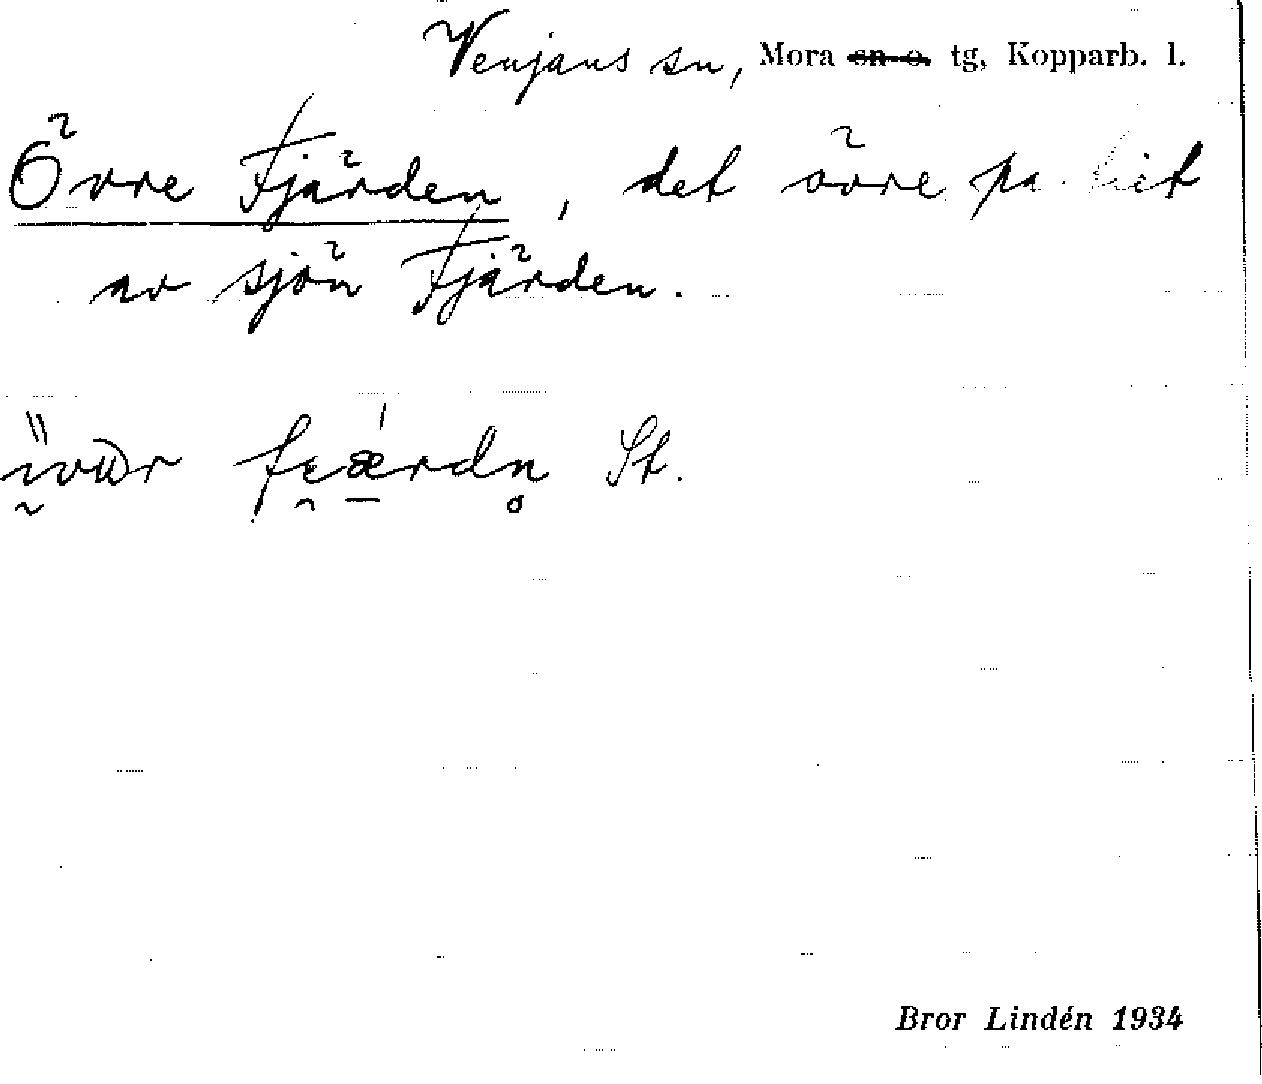 Venjans sn, Mora sn o. tg, Kopparb. l.
Övre Fjärden, det övre pa
av sjön Fjärden.
St.
Bror Lindén 1934